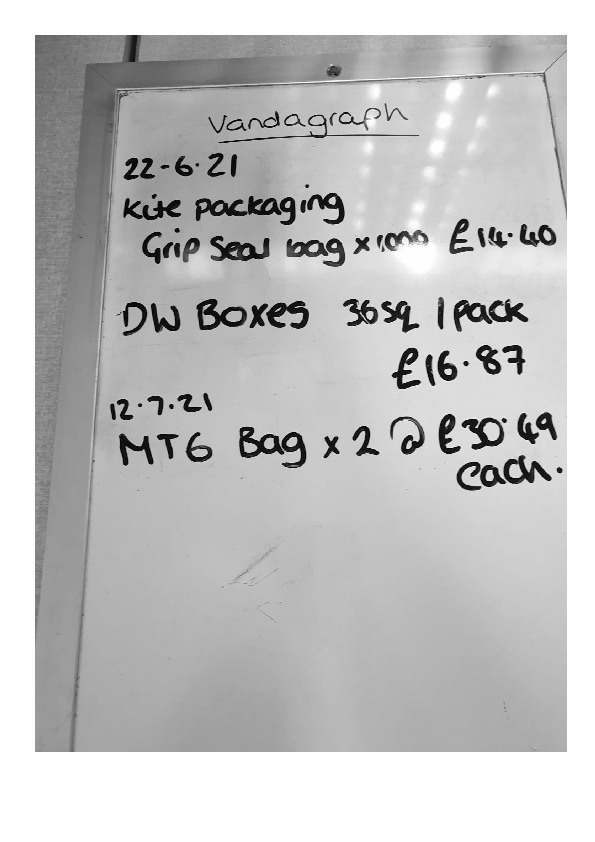 Vandagraph
22-6.21
Kite packaging
Grip Seal bag x 1,000 £14.40
DW Boxes 36sq 1 pack
£16.87
12.7.21
MTG Bag x 2 @ £30.49
each.